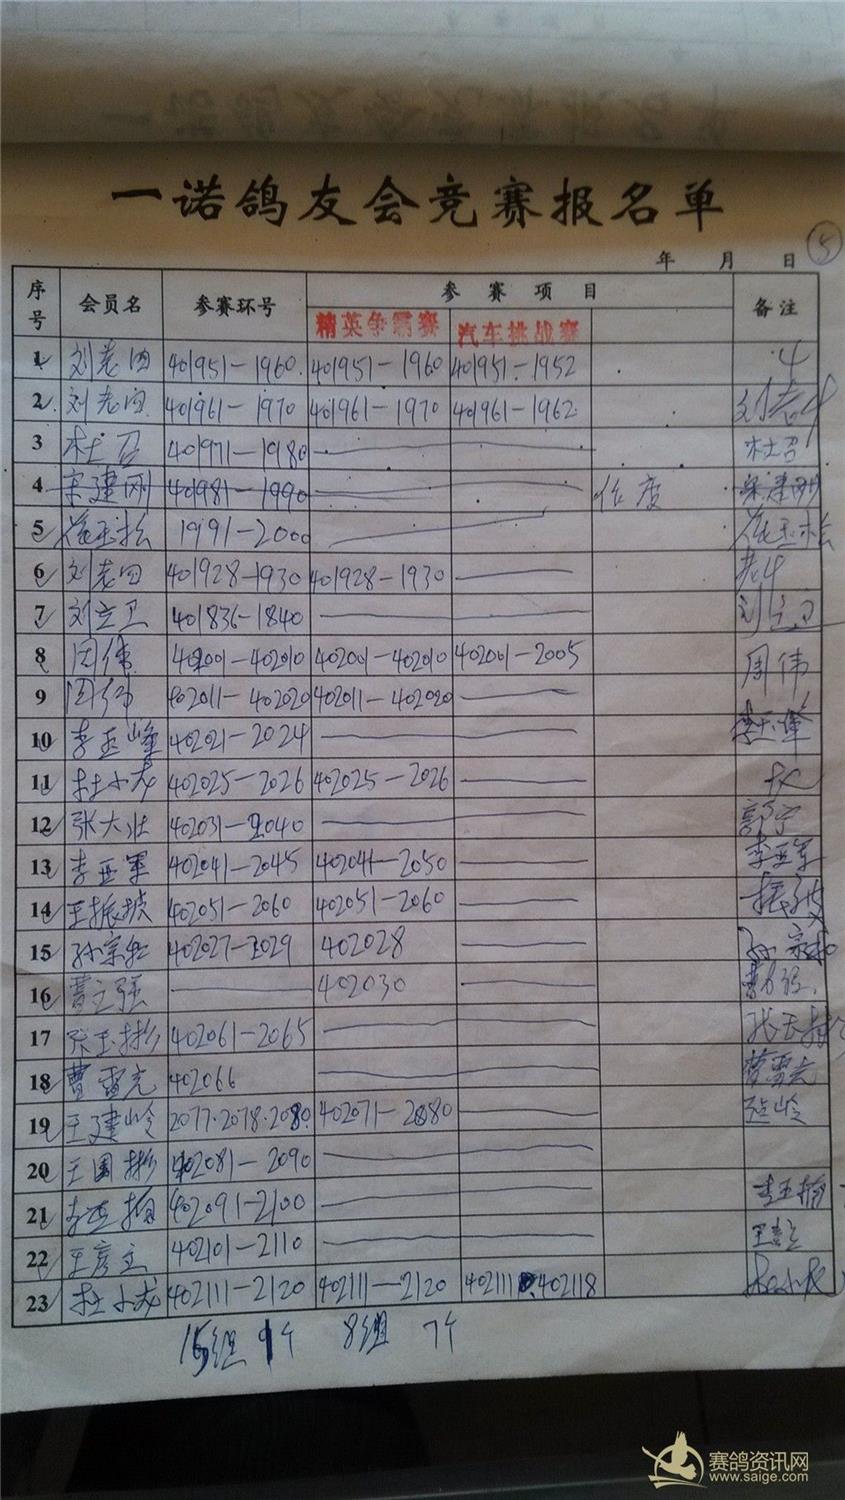 一诺鸽友会竞赛报名单
年 月 日 5
序号 会员名 参赛环号 参赛项目 备注
精英争霸赛 汽车挑战赛
1 刘老四 401951-1960 401951-1960 401951-1952
2 刘老四 401961-1970 401961-1970 401961-1962
3 杜召 401971-1980 杜召
4 宋建刚 401981-1990 作废 宋建刚
5 崔玉松 1991-2000 崔玉松
6 刘老四 401928-1930 401928-1930
7 刘立卫 401836-1840 刘立卫
8 周伟 402001-402010 402001-402010 402001-2005 周伟
9 周伟 402011-402020 402011-402020
10 李玉峰 402021-2024 李玉峰
11 杜小龙 402025-2026 402025-2026
12 张大壮 402031-2040 郭宁
13 李亚军 402041-2045 402041-2050 李亚军
14 王振 402051-2060 402051-2060
15 孙宗 402027-2029 402028
16 曹立强 402030
17 张玉彬 402061-2065
18 曹雷克 402066 曹雷克
19 王建岭 2077.2078.2080 402071-2080 建岭
20 王国彬 402081-2090
21 402091-2100
22 王彦立 402101-2110 王彦立
23 杜小龙 402111-2120 402111-2120 402111 402118 杜小龙
15组 9个 8组 7个
赛鸽资讯网
www.saige.com